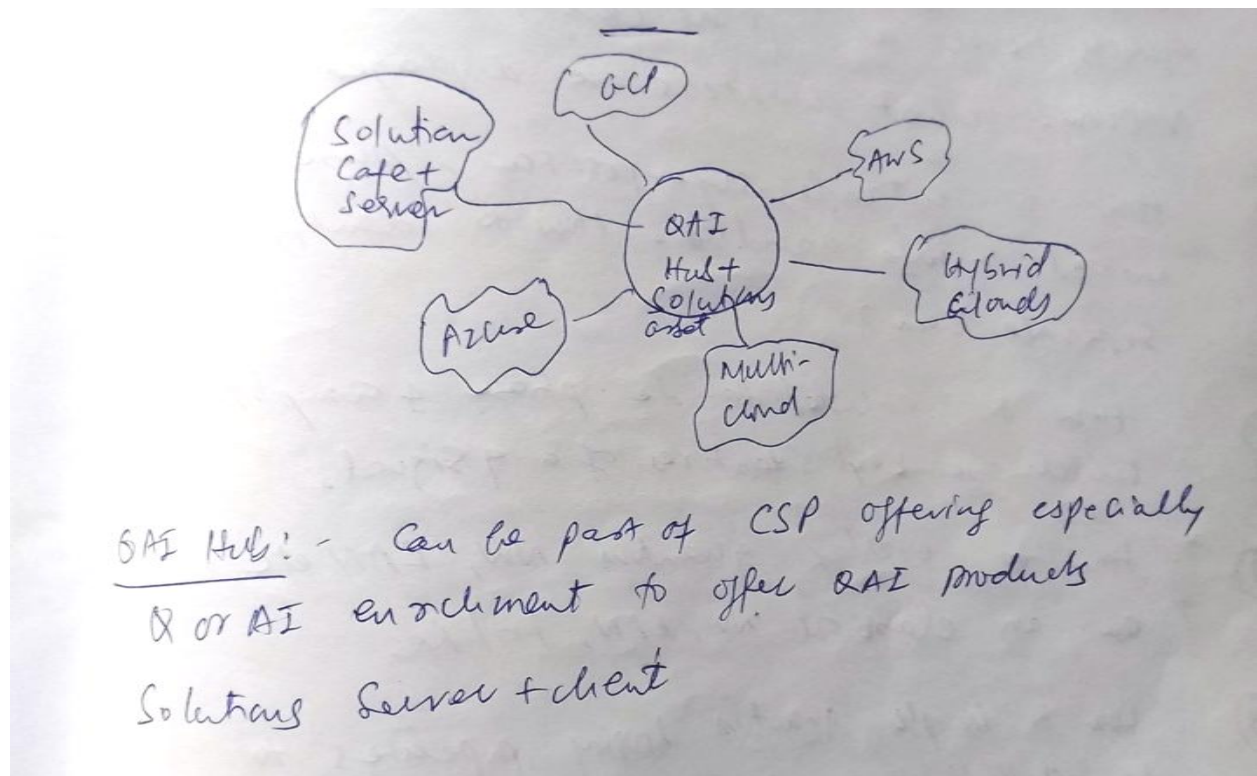 GCP
Solution
Cafe +
Server
AWS
QAI
Hub +
Solutions
asset
Hybrid
Clouds
Azure
Multi-
cloud
QAI Hub: - Can be part of CSP offering especially
Q or AI enrichment to offer QAI products
Solutions Server + client